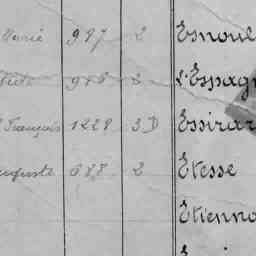 Marie 987 2 Esmoul
976 2 l'Espag
François 1229 3 D Essirar
Auguste 688 2 Etesse
Etienno